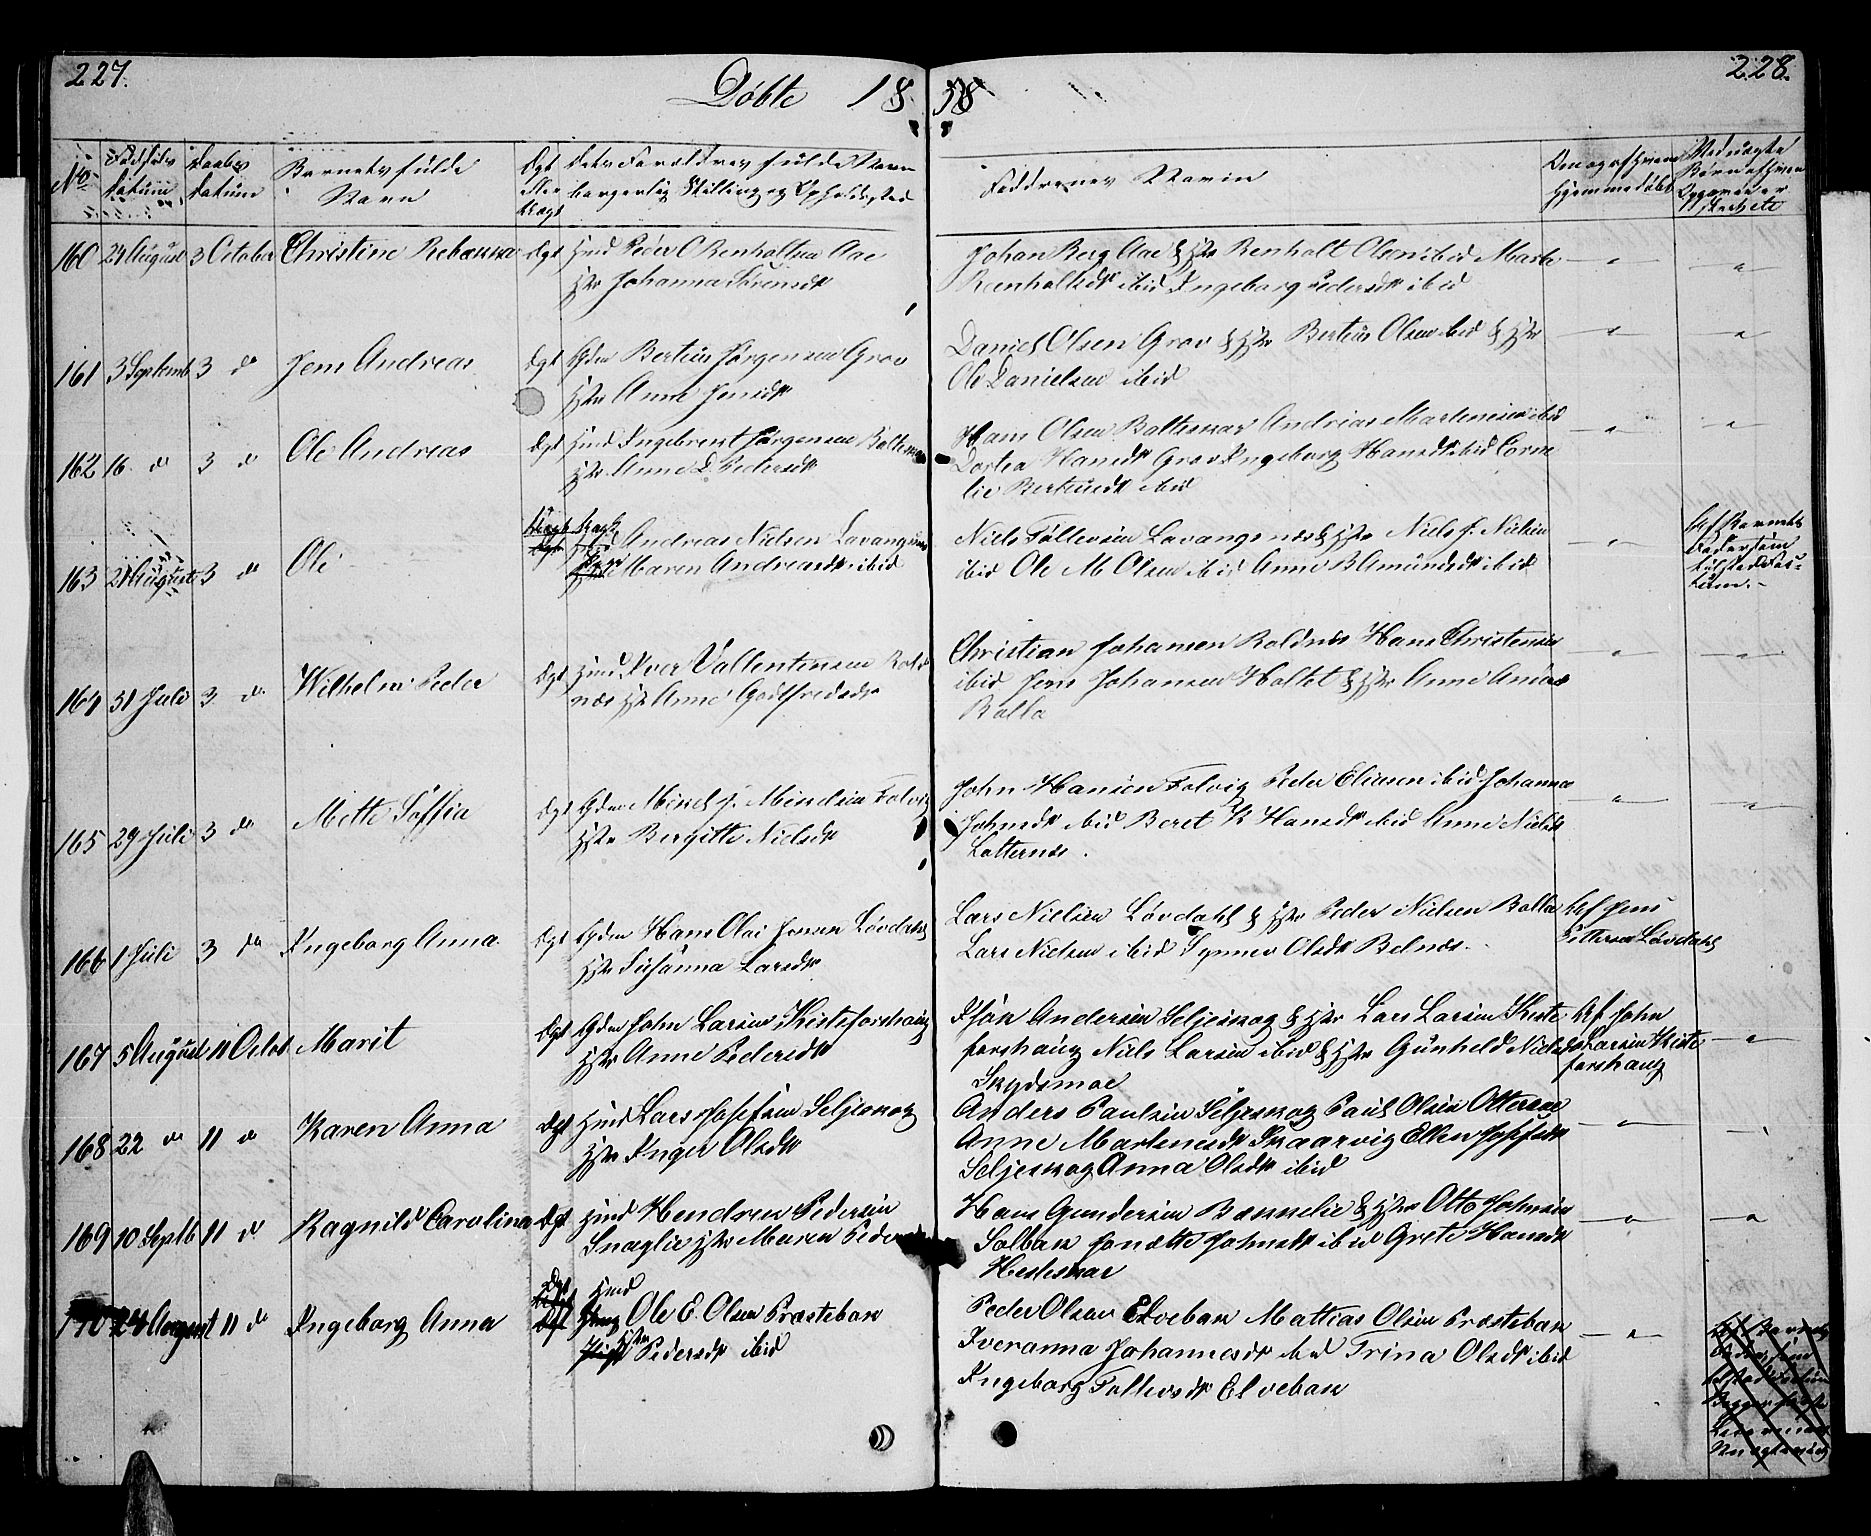 227.
Døbte 18 58
228.
No
Fødsels datum
Daabs datum
Barnets fulde Navn
Ægt eller Uægt
Deres Forældres fulde Navn borgerlig Stilling og Opholdssted
Faddernes Navn
Om og af hvem hjemmedøbt
160 24 August 3 October Christine Rebækka Ægt Hmd Peder O Renholtsen Aae
Hstr Johanna Sørensdt
Johan Berg Aae & Hstr Renholt Olsen ibid Marte
Rænholtsdt ibid Ingeborg Pedersdt ibid
161 3 Septemb 3 do Jens Andreas Ægt Gdm Bertius Jørgensen Grov
Hstr Anne Jensdt
Daniel Olsen Grov & Hstr Bertius Olsen ibid & Hstr
Ole Danielsen ibid
162 16 do 3 do Ole Andreas Ægt Hmd Ingebregt Jørgensen
Hstr Anne D Pedersdt
Hans Olsen Balteskar Andrias Martinisen ibid
Dortea Hansdt Grov Ingeborg Hansdt ibid Corne
lie Bertiusdt ibid
163 21 August 3 do Ole Uægt Andreas Nielsen Lavangsnæs
Maren Andreasdt ibid
Niels Tollevsen Lavangsnæs & Hstr Niels J. Nielsen
ibid Ole M Olsen ibid Anne B Amundsdt ibid
164 31 Juli 3 do Wilhelm Peder Ægt Hmd Iver Vallentinsen Rold
næs Hst Anne Godtfredsdt
Christian Johansen Roldnæs Hans Christensen
ibid Jens Johansen Holtet & Hstr Anne
Balla
165 29 Juli 3 do Mette Soffia Ægt Gdm Mikkel J. Mikkelsen Folvig
Hstr Bergitte Nielsdt
John Hansen Folvig Peder Eliasen ibid Johanna
Johnsdt ibid Beret K Hansdt ibid Anne Nielsdt
Latternæs.
166 1 Juli 3 do Ingeborg Anna Ægt Gdm Hans Olai Jensen Løvdahl
Hstr Susanna Larsdt
Lars Nielsen Løvdahl & Hstr Peder Nielsen Balla
Lars Nielsen ibid Synnev Olsdt Belnæs.
Af Jens
Pettersen Løvdahl
167 5 August 11 Octob Marit Ægt Gdm John Larsen Kisteforshaug
Hstr Anne Pedersdt
Andersen Seljeskog & Hstr Lars Larsen Kiste
forshaug Niels Larsen ibid & Hstr Gunhild Nielsdt
Skydsmoe
Af John
Larsen Kiste
forshaug
168 22 do 11 do Karen Anna Ægt Hmd Lars Josefsen Seljeskog
Hstr Inger Olsdt
Anders Paulsen Seljeskog Paul Olsen Otteraa
Anne Martinesdt Skaarvig Ellen Josefsdt
Seljeskog Anna Olsdt ibid
169 10 Septb 11 do Ragnild Carolina Ægt Hmd Hendrik Pedersen
Snaglie Hstr Maren Pedersdt
Hans Gundersen Bækkelie & Hstr Otto Johnsen
Solbak Jonætte Johnsdt ibid Grete Hansdt
Hesteskar
170 24 August 11 do Ingeborg Anna Ægt Hmd Ole E. Olsen Præstebak
Hstr Pedersdt ibid
Peder Olsen Elvebak Mattias Olsen Præstebak
Iveranna Johannesdt ibid Trina Olsdt ibid
Ingeborg Tollevsdt Elvebak